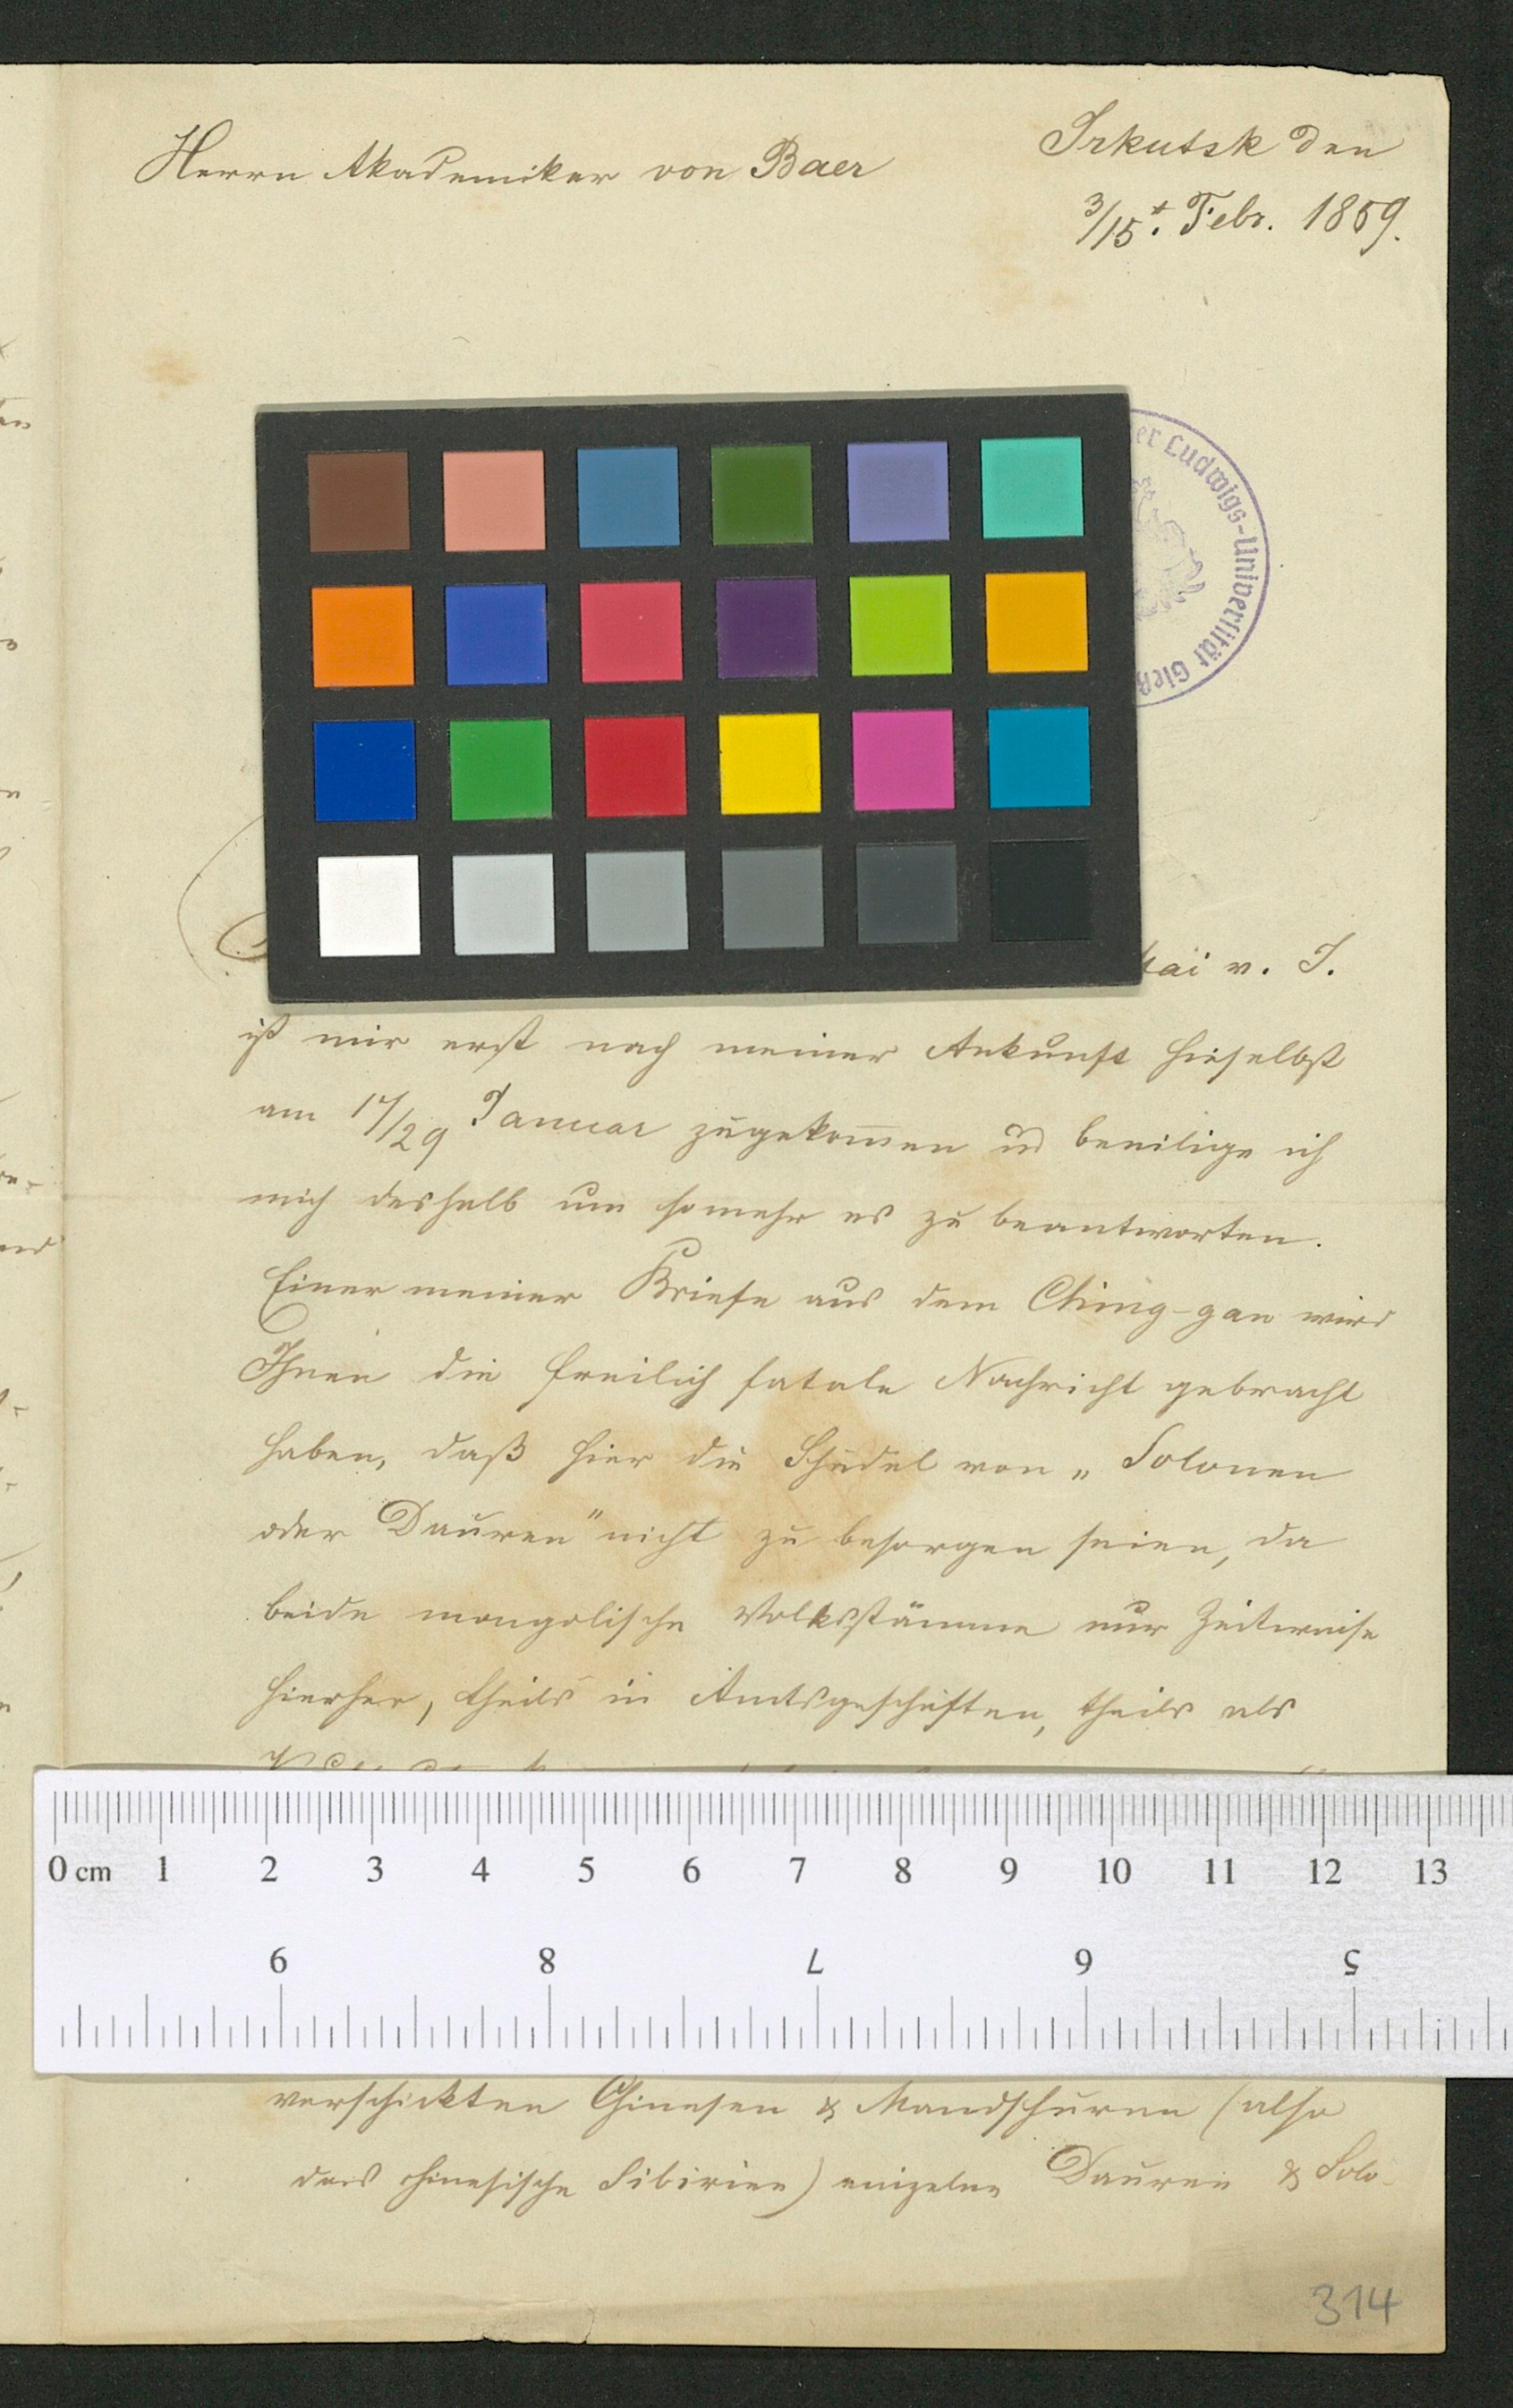 Irkutsk den
Herrn Akademiker von Baer
3/15t. Febr. 1859.
er Ludwigs-Universität Gieß
v. J.
ist mir erst nach meiner Ankunft hieselbst
am 17/29 Januar zugekommen u beeilige ich
mich deshalb um somehr es zu beantworten.
Einer meiner Briefe aus dem Ching-gan wird
Ihnen die freilich fatale Nachricht gebracht
haben, daß hier die Schädel von „Solonen
oder Dauren" nicht zu besorgen seien, da
beide mongolische Volksstämme nur zeitweise
hierher, theils in Amtsgeschäften, theils als
0 cm 1 2 3 4 5 6 7 8 9 10 11 12 13
9 8 7 6 5
verschickten Chinesen & Mandschuren (also
das chinesische Sibirien) einzelne Dauren & Solo-
314